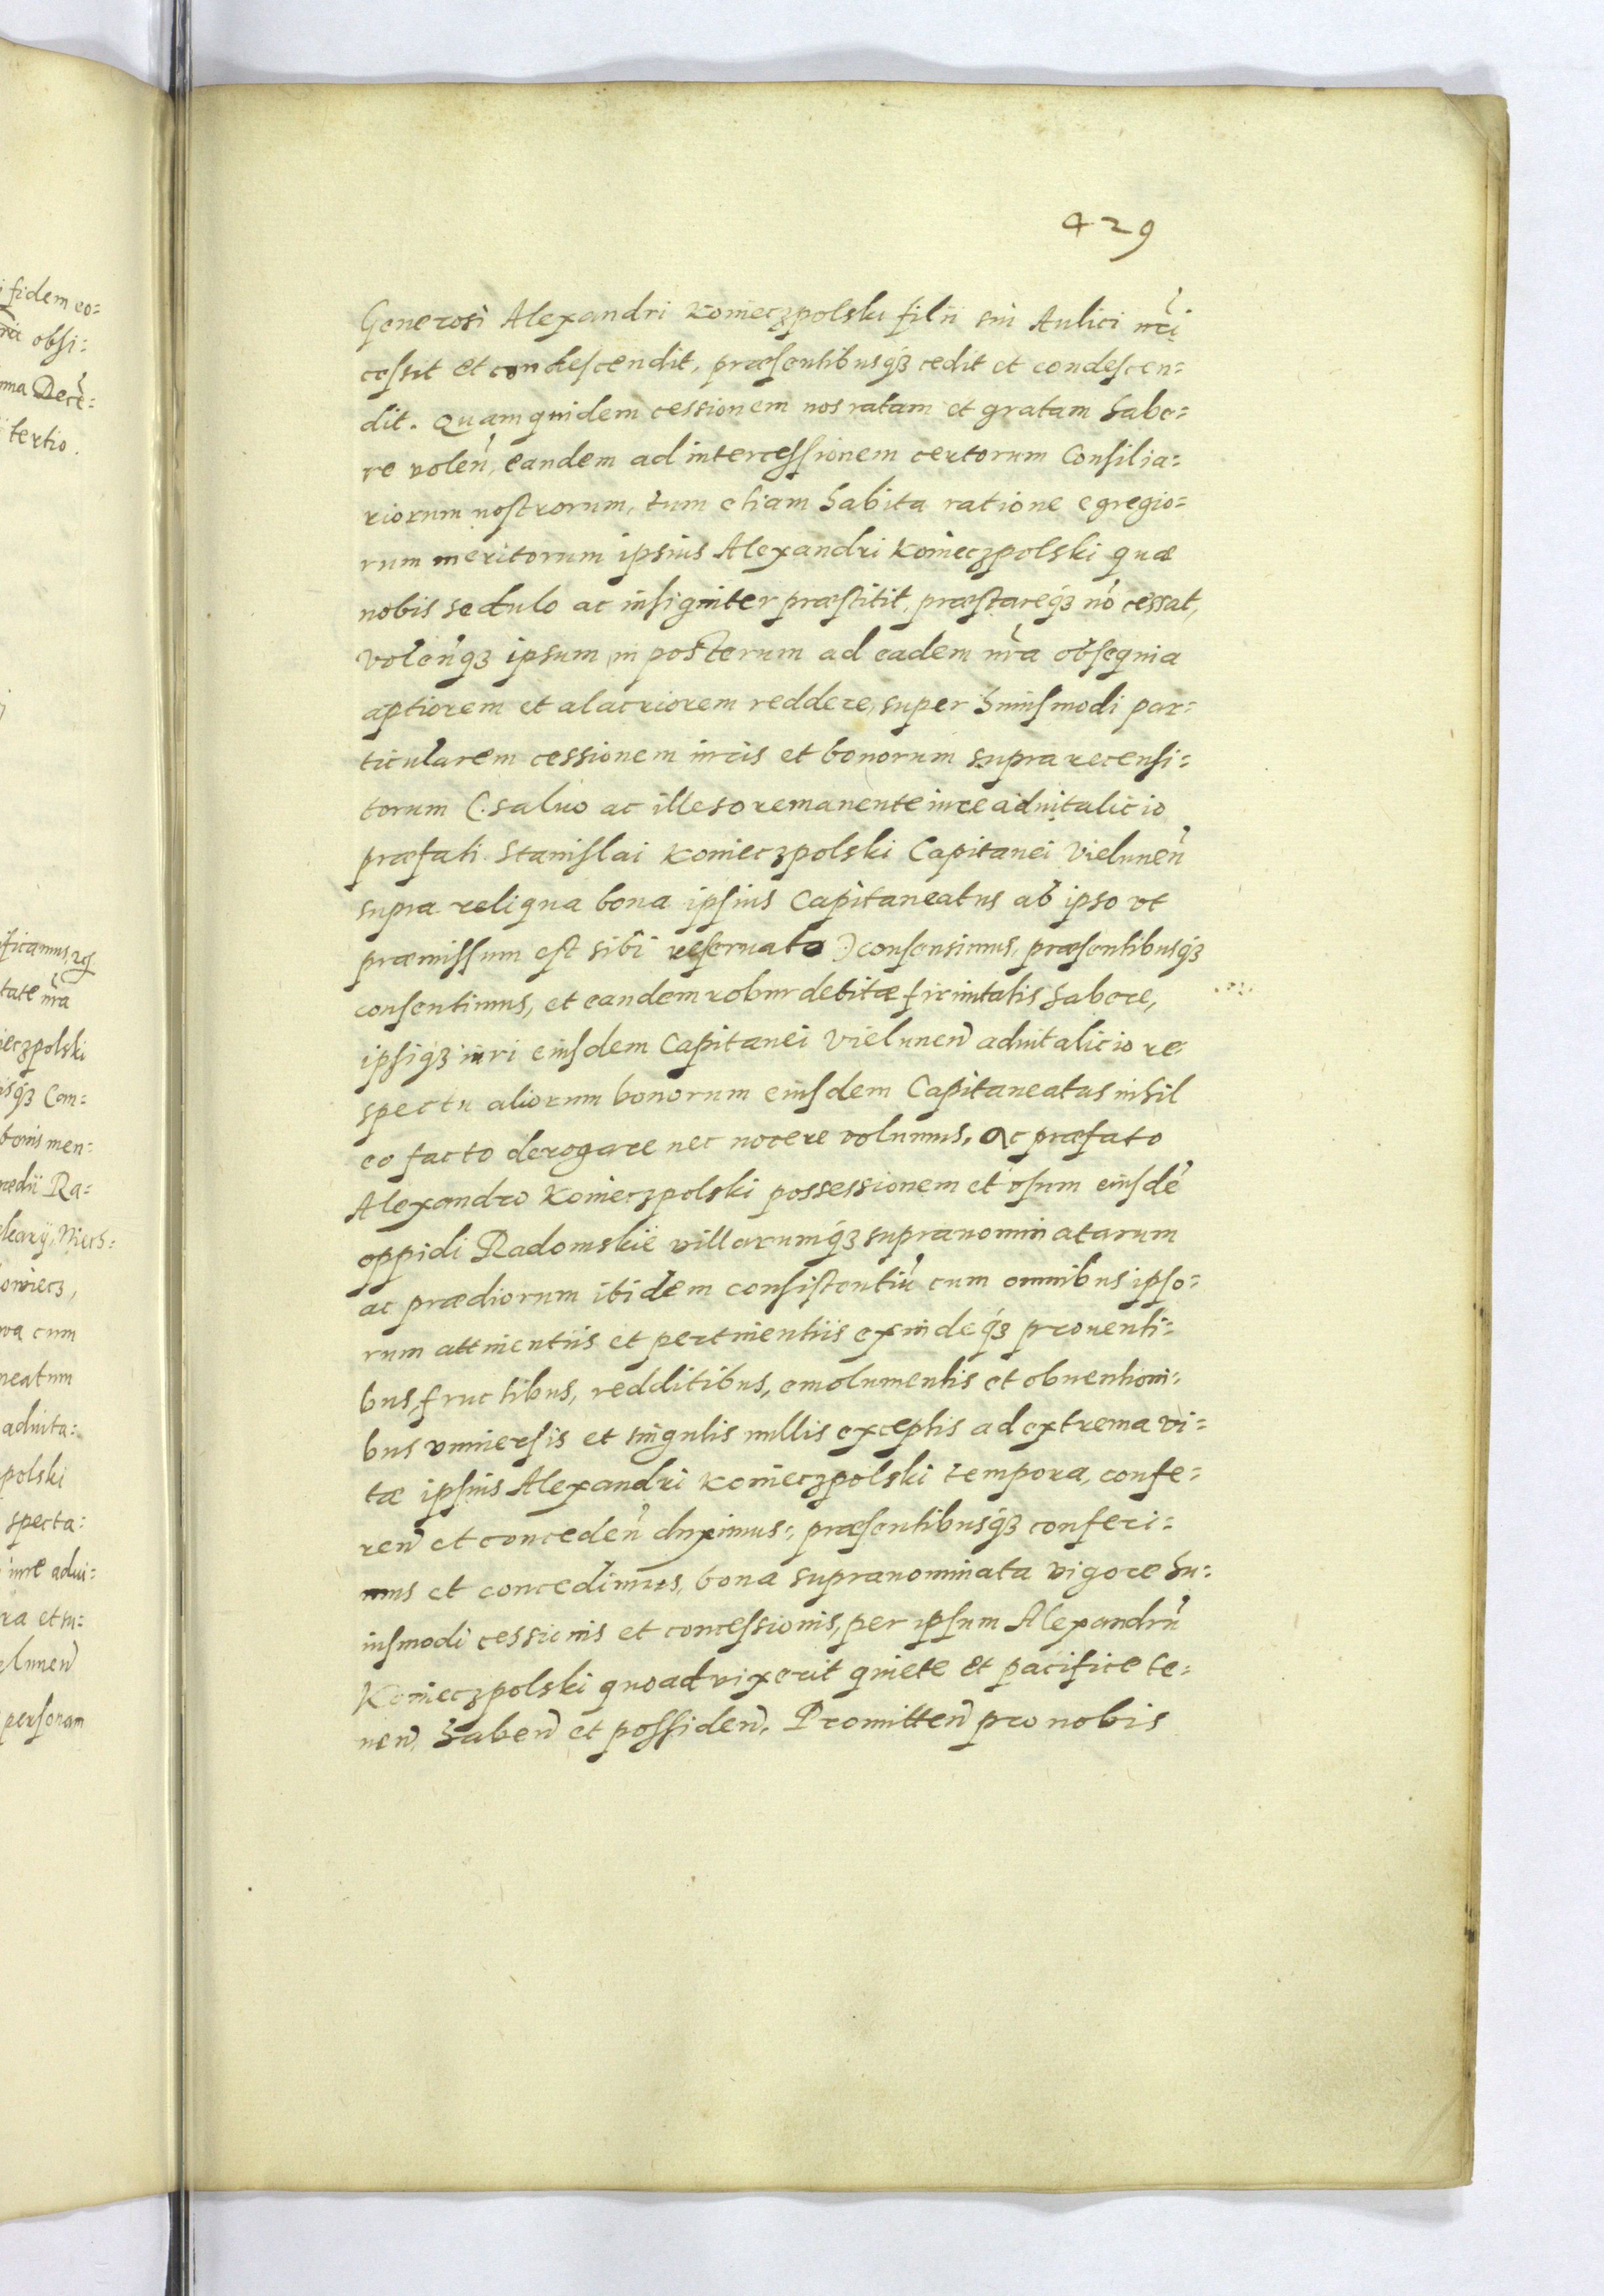 429
Generosi Alexandri Konieczpolski filii sui Aulici nr̃i
cessit et condescendit, præsentibusq́ʒ cedit et condescen=
dit. Quam quidem cessionem nos ratam et gratam habe=
re voleñ, eandem ad intercessionem certorum Consilia=
riorum nostrorum, tum etiam habita ratione egregio=
rum meritorum ipsius Alexandri Konieczpolski quæ
nobis sedulo ac insigniter præstitit, præstareq́ʒ nõ cessat,
voleñq́ʒ ipsum in posterum ad eadem nr̃a obsequia
aptiorem et alacriorem reddere, super huiusmodi par=
ticularem cessionem iuris et bonorum supra recensi=
torum (. saluo ac illeso remanente iure aduitalicio
præfati Stanislai Konieczpolski Capitanei Vieluneñ
supra reliqua bona ipsius Capitaneatus ab ipso vt
præmissum est sibi reseruato .) consensimus, præsentibusq́ʒ
consentimus, et eandem robur debitæ firmitatis habere,
ipsiq́ʒ iuri eiusdem Capitanei Vieluneñ aduitalicio re
spectu aliorum bonorum eiusdem Capitaneatus nihil
eo facto derogare nec nocere volumus. Ac præfato
Alexandro Konieczpolski possessionem et vsum eiusdẽ
oppidi Radomskie villarumq́ʒ supranominatarum
ac prædiorum ibidem consistentiũ cum omnibus ipso=
rum attinentiis et pertinentiis exindeq́ʒ prouenti=
bus, fructibus, redditibus, emolumentis et obuentioni=
bus vniuersis et singulis nullis exceptis ad extrema vi=
tæ ipsius Alexandri Konieczpolski tempora, confe=
reñ et concedeñ duximus, præsentibusq́ʒ conferi=
mus et concedimus, bona supranominata vigore hu=
iusmodi cessionis et concessionis, per ipsum Alexandrũ
Konieczpolski quoad vixerit quiete et pacifice te=
neñ, habeñ et possideñ, Promitteñ pro nobis